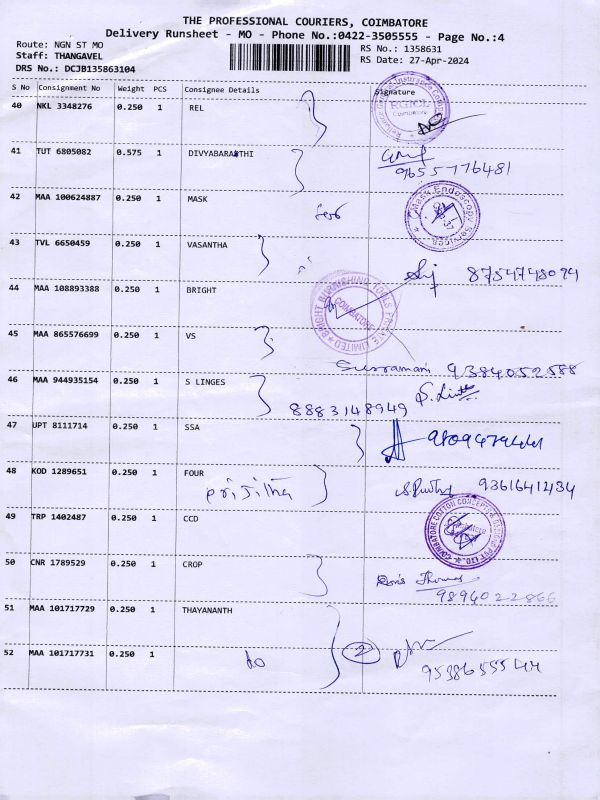 THE PROFESSIONAL COURIERS, COIMBATORE
Delivery Runsheet - MO - Phone No.:0422-3505555 - Page No.:4
Route: NGN ST MO
RS No.: 1358631
Staff: THANGAVEL
RS Date: 27-Apr-2024
DRS No.: DCJB135863104
S No Consignment No Weight PCS Consignee Details Signature
40 NKL 3348276 0.250 1 REL
RGICL
Coimbatore
41 TUT 6805082 0.575 1 DIVYABARATHI
9655776481
42 MAA 100624887 0.250 1 MASK
Mask Endoscopy Services
43 TVL 6650459 0.250 1 VASANTHA
8754748094
44 MAA 108893388 0.250 1 BRIGHT
BRIGHT BURNISHING TOOLS PRIVATE LIMITED
COIMBATORE
45 MAA 865576699 0.250 1 VS
9384052588
46 MAA 944935154 0.250 1 S LINGES
8883148949
47 UPT 8111714 0.250 1 SSA
48 KOD 1289651 0.250 1 FOUR
9361641434
49 TRP 1402487 0.250 1 CCD
50 CNR 1789529 0.250 1 CROP
Thomas
9894022866
51 MAA 101717729 0.250 1 THAYANANTH
52 MAA 101717731 0.250 1
do
2